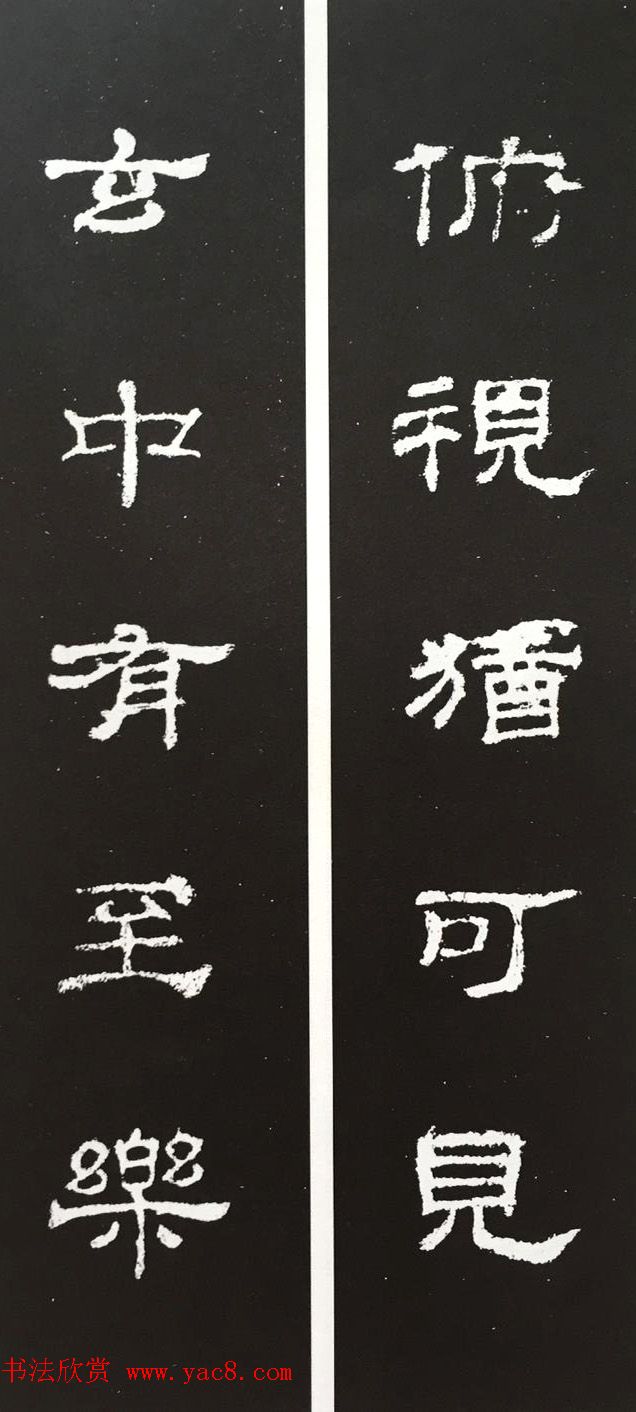 俯視猶可見
玄中有至樂
书法欣赏 www.yac8.com